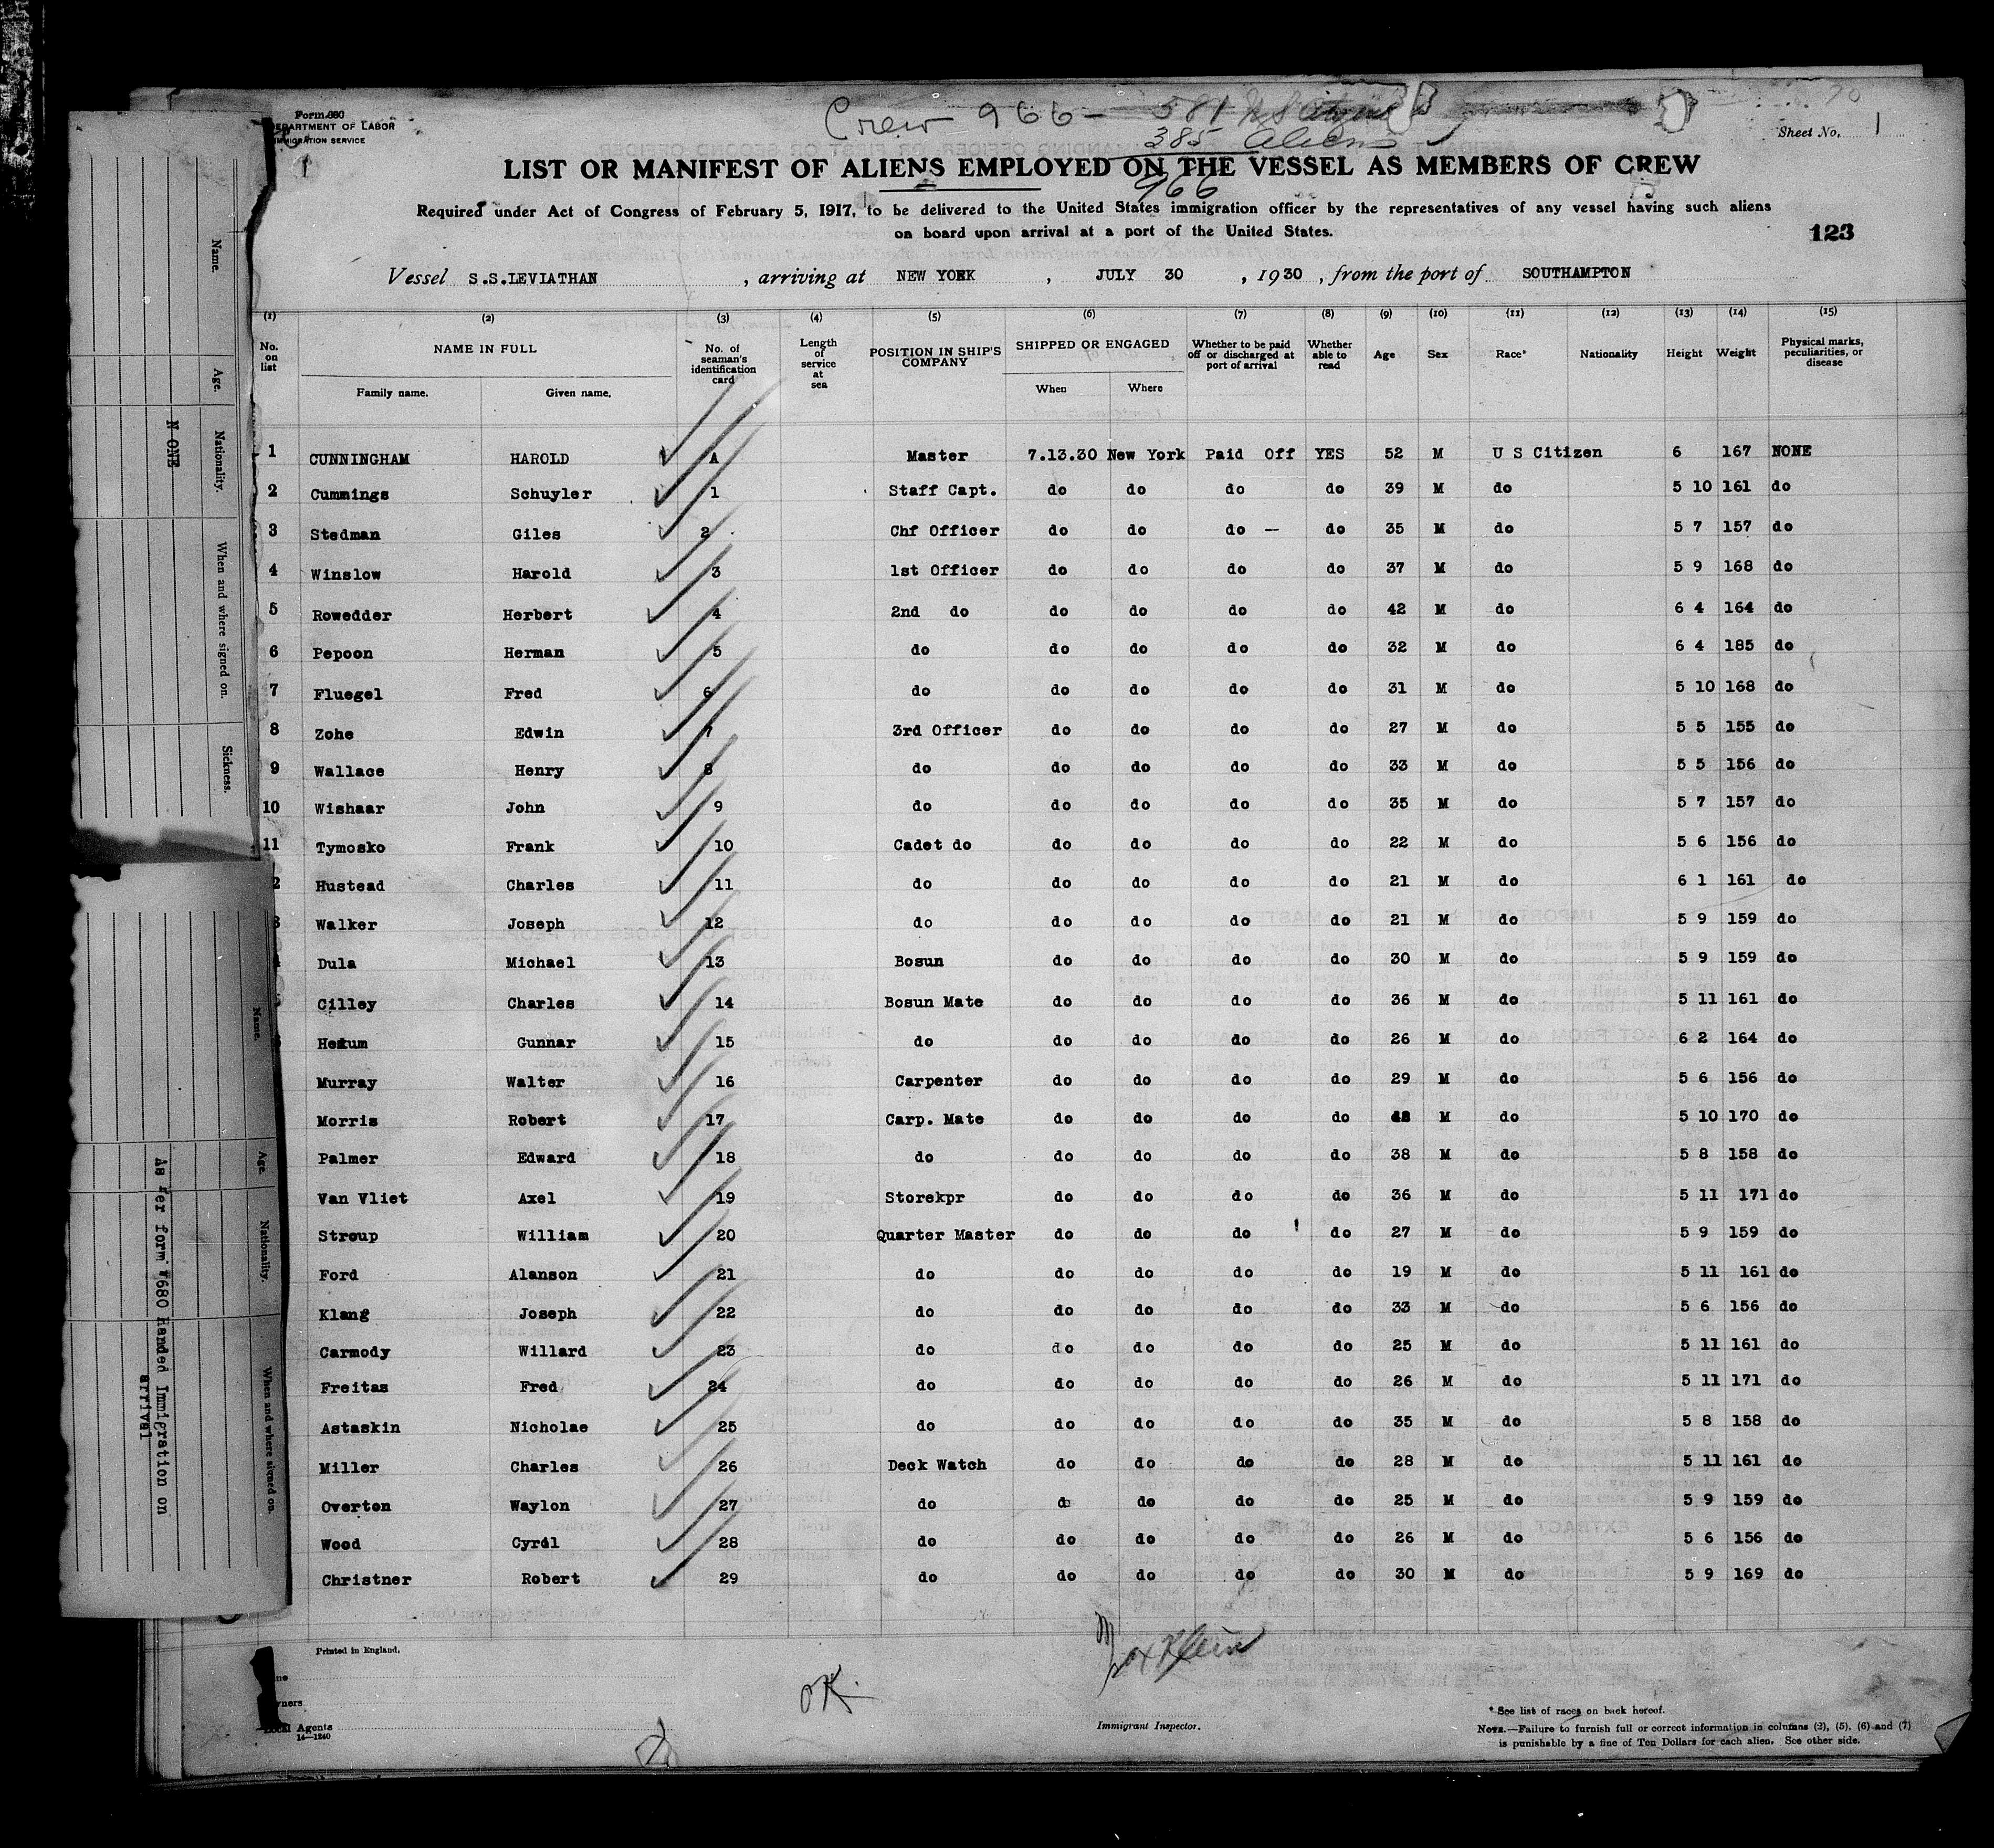 Crew 966 - 581 U S Citizens
385 Aliens
966
Form 680
DEPARTMENT OF LABOR
IMMIGRATION SERVICE
Sheet No. 1
LIST OR MANIFEST OF ALIENS EMPLOYED ON THE VESSEL AS MEMBERS OF CREW
Required under Act of Congress of February 5, 1917, to be delivered to the United States immigration officer by the representatives of any vessel having such aliens
on board upon arrival at a port of the United States.
123
Vessel S.S.LEVIATHAN , arriving at NEW YORK , JULY 30 , 1930 , from the port of SOUTHAMPTON
(1) (2) (3) (4) (5) (6) (7) (8) (9) (10) (11) (12) (13) (14) (15)
No. on list NAME IN FULL Family name. Given name. No. of seaman's identification card Length of service at sea POSITION IN SHIP'S COMPANY SHIPPED OR ENGAGED When Where Whether to be paid off or discharged at port of arrival Whether able to read Age Sex Race* Nationality Height Weight Physical marks, peculiarities, or disease
1 CUNNINGHAM HAROLD A Master 7.13.30 New York Paid Off YES 52 M U S Citizen 6 167 NONE
2 Cummings Schuyler 1 Staff Capt. do do do do 39 M do 5 10 161 do
3 Stedman Giles 2 Chf Officer do do do — do 35 M do 5 7 157 do
4 Winslow Harold 3 1st Officer do do do do 37 M do 5 9 168 do
5 Rowedder Herbert 4 2nd do do do do do 42 M do 6 4 164 do
6 Pepoon Herman 5 do do do do do 32 M do 6 4 185 do
7 Fluegel Fred 6 do do do do do 31 M do 5 10 168 do
8 Zohe Edwin 7 3rd Officer do do do do 27 M do 5 5 155 do
9 Wallace Henry 8 do do do do do 33 M do 5 5 156 do
10 Wishaar John 9 do do do do do 35 M do 5 7 157 do
11 Tymosko Frank 10 Cadet do do do do do 22 M do 5 6 156 do
2 Hustead Charles 11 do do do do do 21 M do 6 1 161 do
3 Walker Joseph 12 do do do do do 21 M do 5 9 159 do
Dula Michael 13 Bosun do do do do 30 M do 5 9 159 do
Cilley Charles 14 Bosun Mate do do do do 36 M do 5 11 161 do
Gunnar 15 do do do do do 26 M do 6 2 164 do
Murray Walter 16 Carpenter do do do do 29 M do 5 6 156 do
Morris Robert 17 Carp. Mate do do do do M do 5 10 170 do
Palmer Edward 18 do do do do do 38 M do 5 8 158 do
Van Vliet Axel 19 Storekpr do do do do 36 M do 5 11 171 do
Stroup William 20 Quarter Master do do do do 27 M do 5 9 159 do
Ford Alanson 21 do do do do do 19 M do 5 11 161 do
Klang Joseph 22 do do do do do 33 M do 5 6 156 do
Carmody Willard 23 do do do do do 25 M do 5 11 161 do
Freitas Fred 24 do do do do do 26 M do 5 11 171 do
Astaskin Nicholae 25 do do do do do 35 M do 5 8 158 do
Miller Charles 26 Deck Watch do do do do 28 M do 5 11 161 do
Overton Waylon 27 do do do do do 25 M do 5 9 159 do
Wood Cyril 28 do do do do do 26 M do 5 6 156 do
Christner Robert 29 do do do do do 30 M do 5 9 169 do
Printed in England.
OK
Max Klein
Immigrant Inspector.
Local Agents
14—1240
* See list of races on back hereof.
NOTE.—Failure to furnish full or correct information in columns (2), (5), (6) and (7)
is punishable by a fine of Ten Dollars for each alien. See other side.
Name. Age. Nationality. When and where signed on. Sickness.
N ONE
Name. Age. Nationality. When and where signed on.
As per form 680 Handed Immigration on
arrival